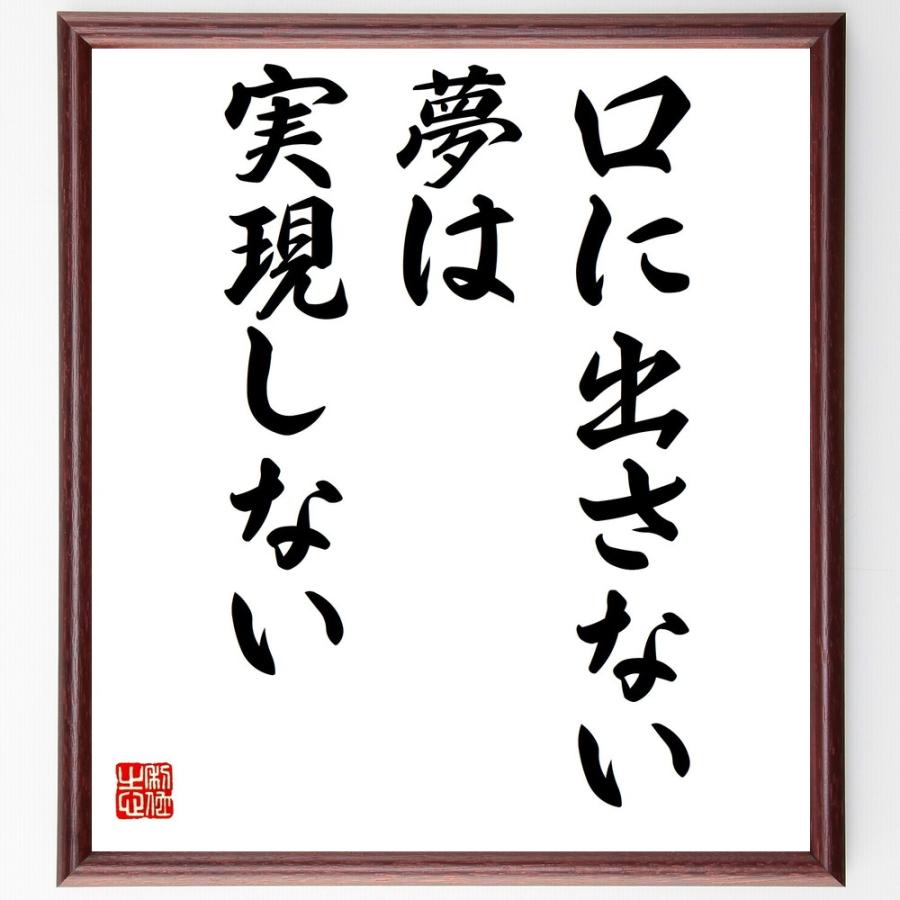 口に出さない
夢は
実現しない